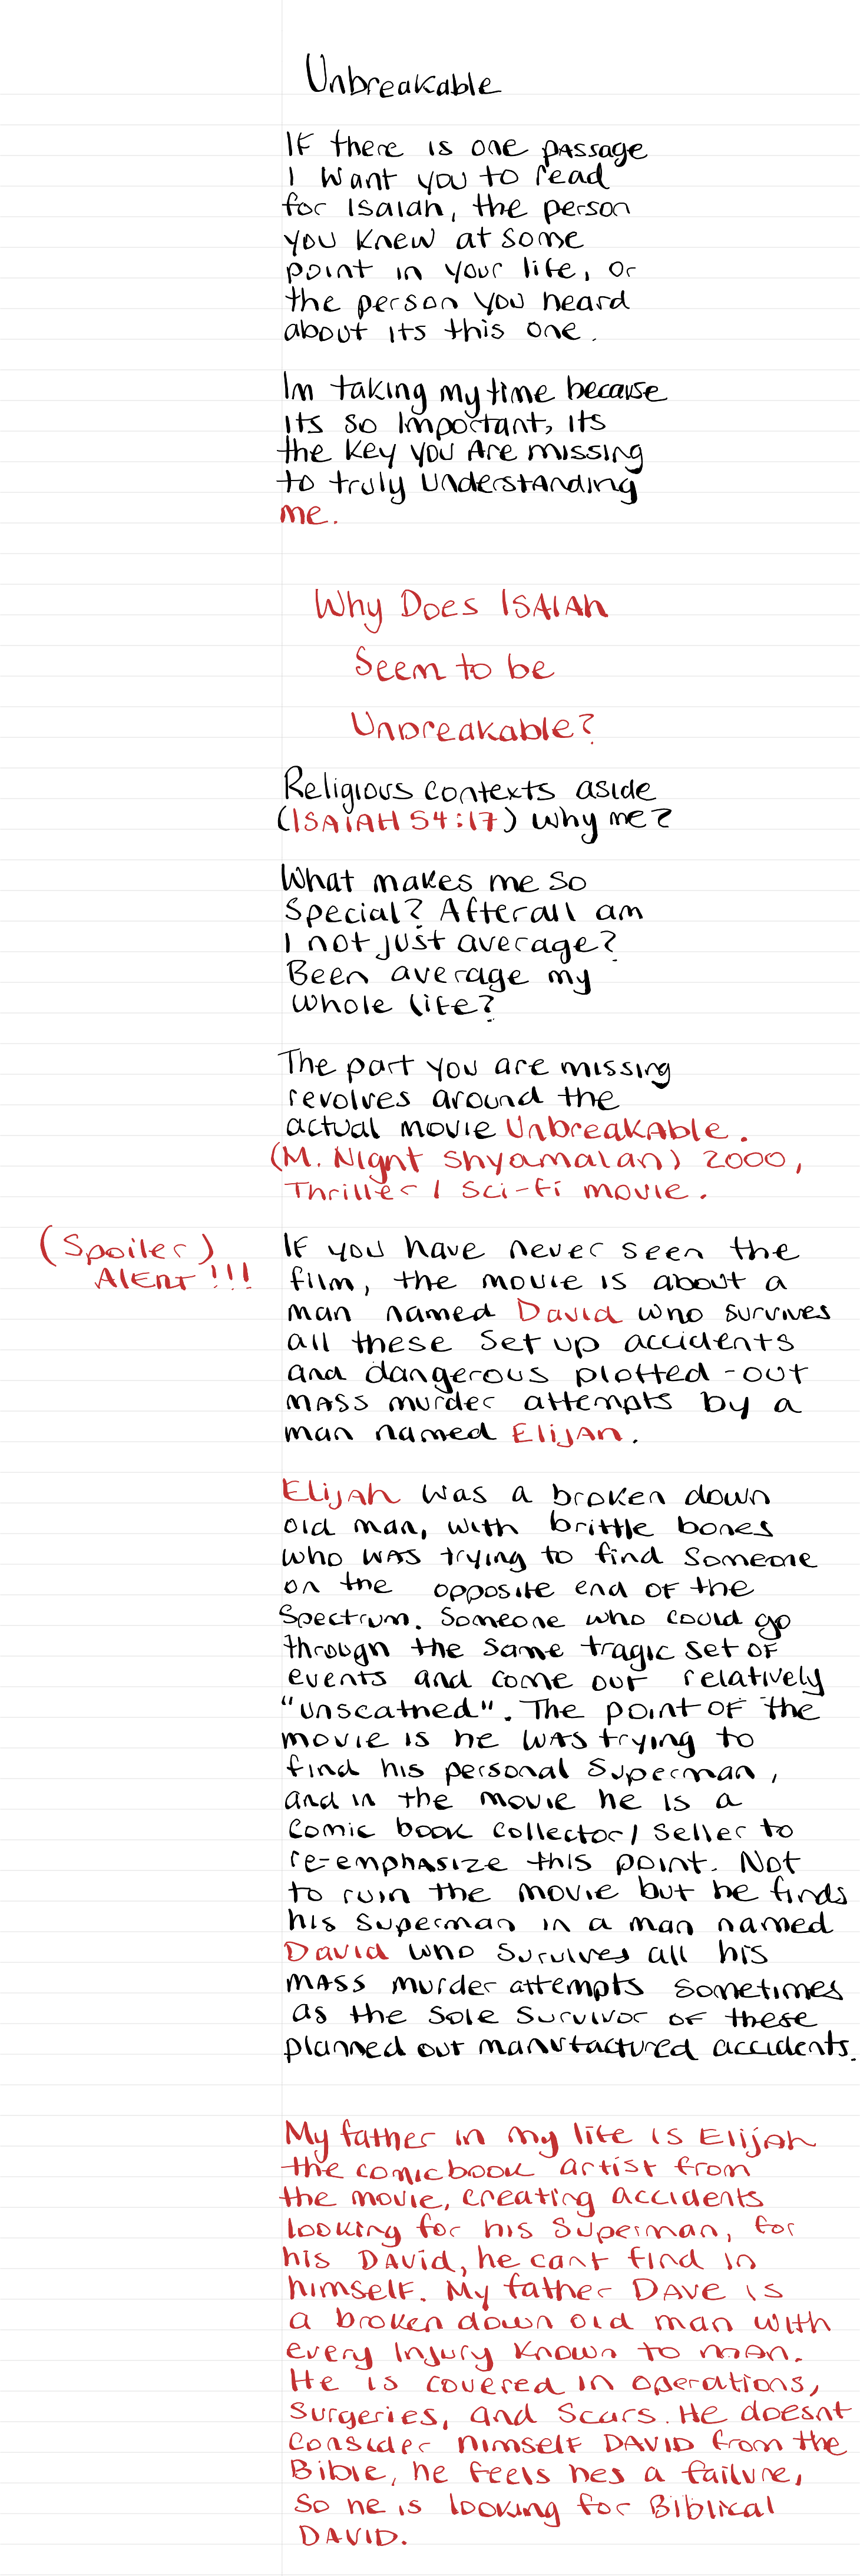 Unbreakable
If there is one passage
I want you to read
for Isaiah, the person
you knew at some
point in your life, or
the person you heard
about its this one.
Im taking my time because
its so important, its
the key you are missing
to truly understanding
me.
Why Does ISAIAh
Seem to be
Unbreakable?
Religious contexts aside
(ISAIAH 54:17) why me?
What makes me so
special? Afterall am
I not just average?
Been average my
whole life?
The part you are missing
revolves around the
actual movie Unbreakable.
(M. Night Shyamalan) 2000,
Thriller / Sci-fi movie.
(Spoiler)
Alert!!!
If you have never seen the
film, the movie is about a
man named David who survives
all these set up accidents
and dangerous plotted-out
mass murder attempts by a
man named Elijah.
Elijah was a broken down
old man, with brittle bones
who was trying to find someone
on the opposite end of the
spectrum. Someone who could go
through the same tragic set of
events and come out relatively
"unscathed". The point of the
movie is he was trying to
find his personal Superman,
and in the movie he is a
comic book collector / seller to
re-emphasize this point. Not
to ruin the movie but he finds
his Superman in a man named
David who survives all his
mass murder attempts sometimes
as the sole survivor of these
planned out manufactured accidents.
My father in my life is Elijah
the comicbook artist from
the movie, creating accidents
looking for his Superman, for
his David, he cant find in
himself. My father Dave is
a broken down old man with
every injury known to man.
He is covered in operations,
surgeries, and scars. He doesnt
consider himself DAVID from the
Bible, he feels hes a failure,
so he is looking for Biblical
DAVID.